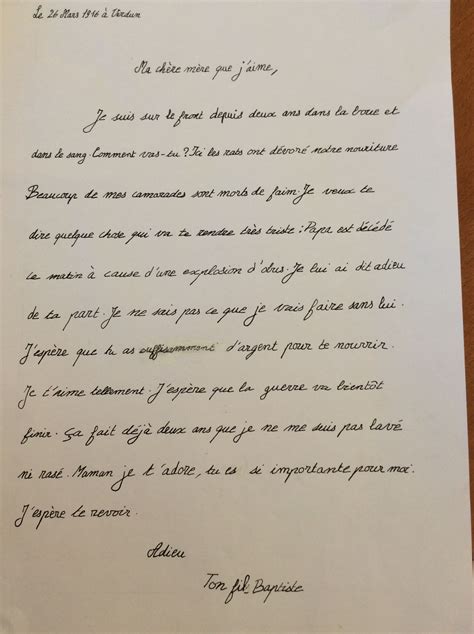 Le 26 Mars 1916 à Verdun
Ma chère mère que j'aime,
Je suis sur le front depuis deux ans dans la boue et
dans le sang. Comment vas-tu ? Ici les rats ont dévoré notre nouriture
Beaucoup de mes camarades sont morts de faim. Je veux te
dire quelque chose qui va te rendre très triste : Papa est décédé
ce matin à cause d'une explosion d'obus. Je lui ai dit adieu
de ta part. Je ne sais pas ce que je vais faire sans lui.
J'espère que tu as suffisamment d'argent pour te nourrir.
Je t'aime tellement. J'espère que la guerre va bientôt
finir. Ça fait déjà deux ans que je ne me suis pas lavé
ni rasé. Maman je t'adore, tu es si importante pour moi.
J'espère te revoir.
Adieu
Ton fils Baptiste